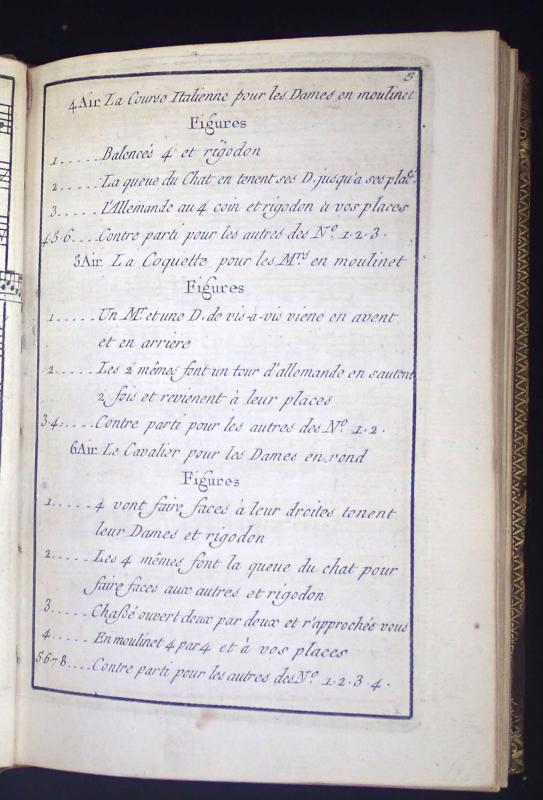 5
4 Air La Course Italienne pour les Dames en moulinet
Figures
1..... Balencés 4 et rigodon
2..... La queue du Chat en tenent ses D. jusqu'a ses plac.
3..... l'Allemande au 4 coin et rigodon à vos places
4.5.6... Contre parti pour les autres des Nº 1.2.3.
5 Air La Coquette pour les Mrs en moulinet
Figures
1..... Un Mr. et une D. de vis-à-vis viene en avent
et en arriére
2..... Les 2 mêmes font un tour d'allemande en sautent
2 fois et revienent à leur places
3.4..... Contre parti pour les autres des Nº 1.2.
6 Air Le Cavalier pour les Dames en rond
Figures
1..... 4 vont faire faces à leur droites tenent
leur Dames et rigodon
2..... Les 4 mêmes font la queue du chat pour
faire faces aux autres et rigodon
3..... Chaßé ouvert deux par deux et r'approchés vous
4..... En moulinet 4 par 4 et à vos places
5.6.7.8.... Contre parti pour les autres des Nº 1.2.3.4.